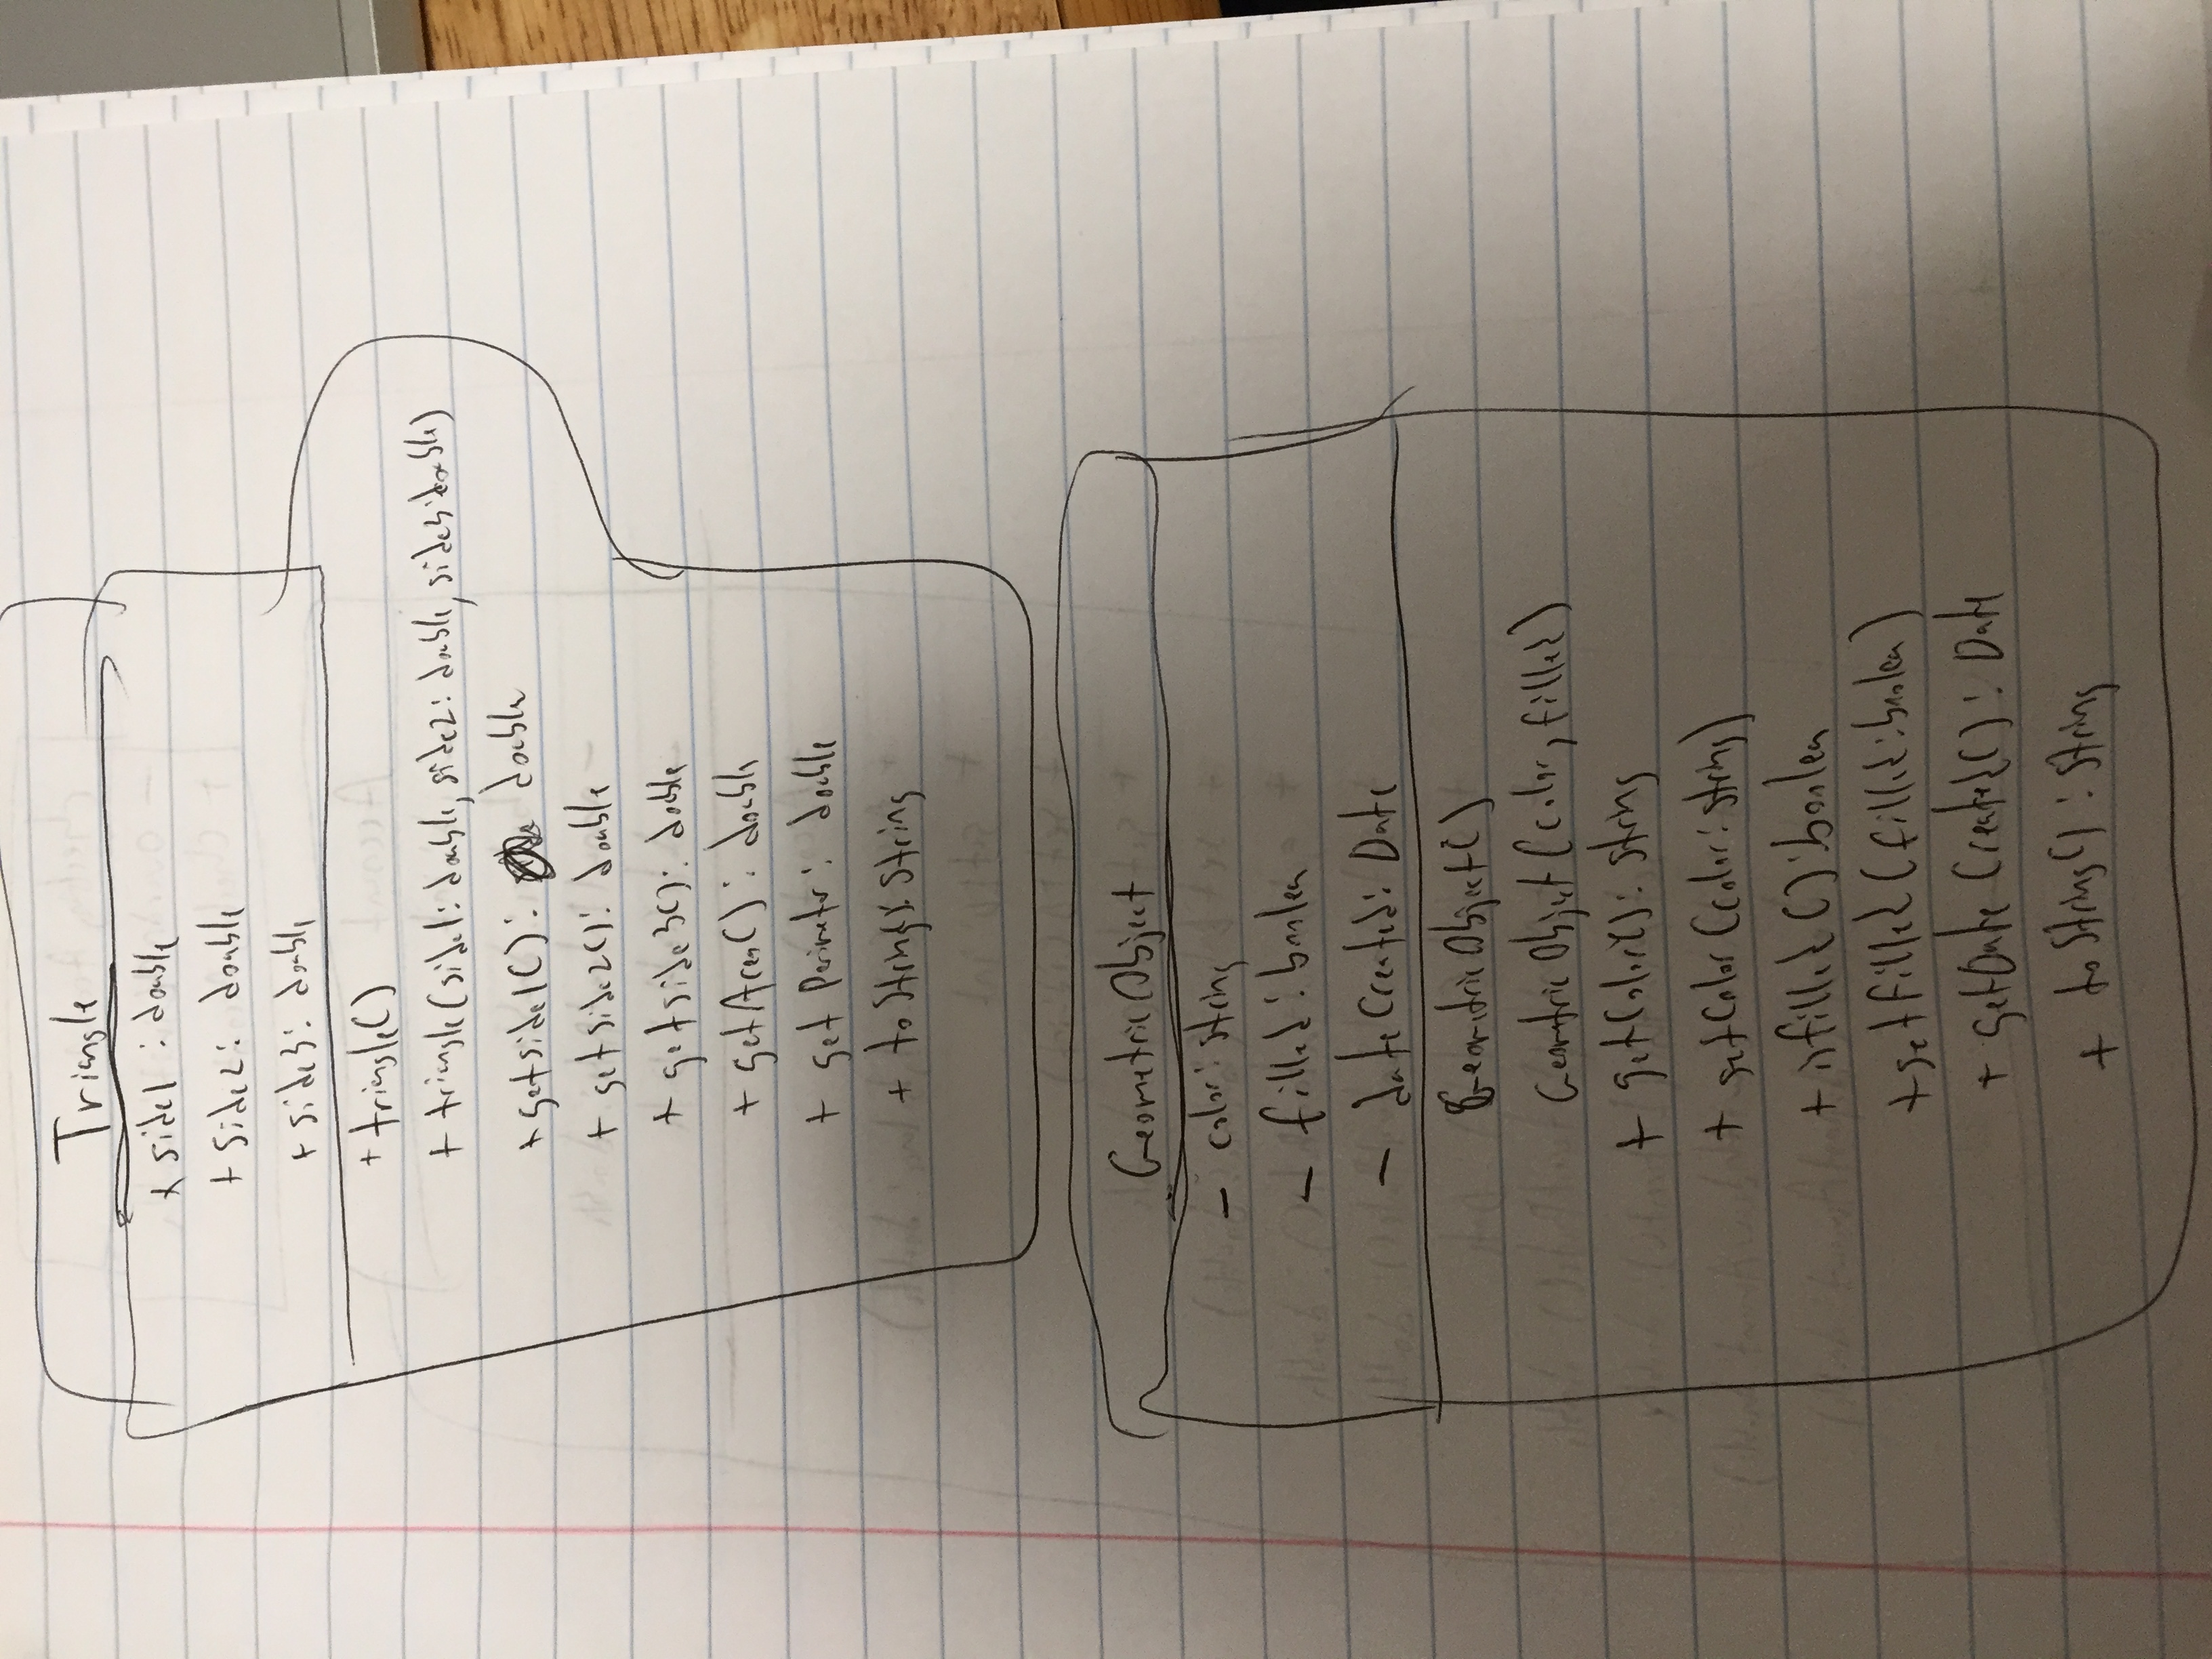 Triangle
+ side1 : double
+ side2 : double
+ side3 : double
+ triangle()
+ triangle(side1: double, side2: double, side3: double)
+ getside1() : double
+ getside2() : double
+ getside3() : double
+ getArea() : double
+ get Perimeter : double
+ toString(): String
GeometricObject
- color : string
- filled : boolea
- dateCreated : Date
GeometricObject()
GeometricObject(color, filled)
+ getColor() : string
+ setColor (color : string)
+ isfilled () : boolea
+ setFilled (filled : boolea)
+ getDate Created() : Date
+ toString() : String